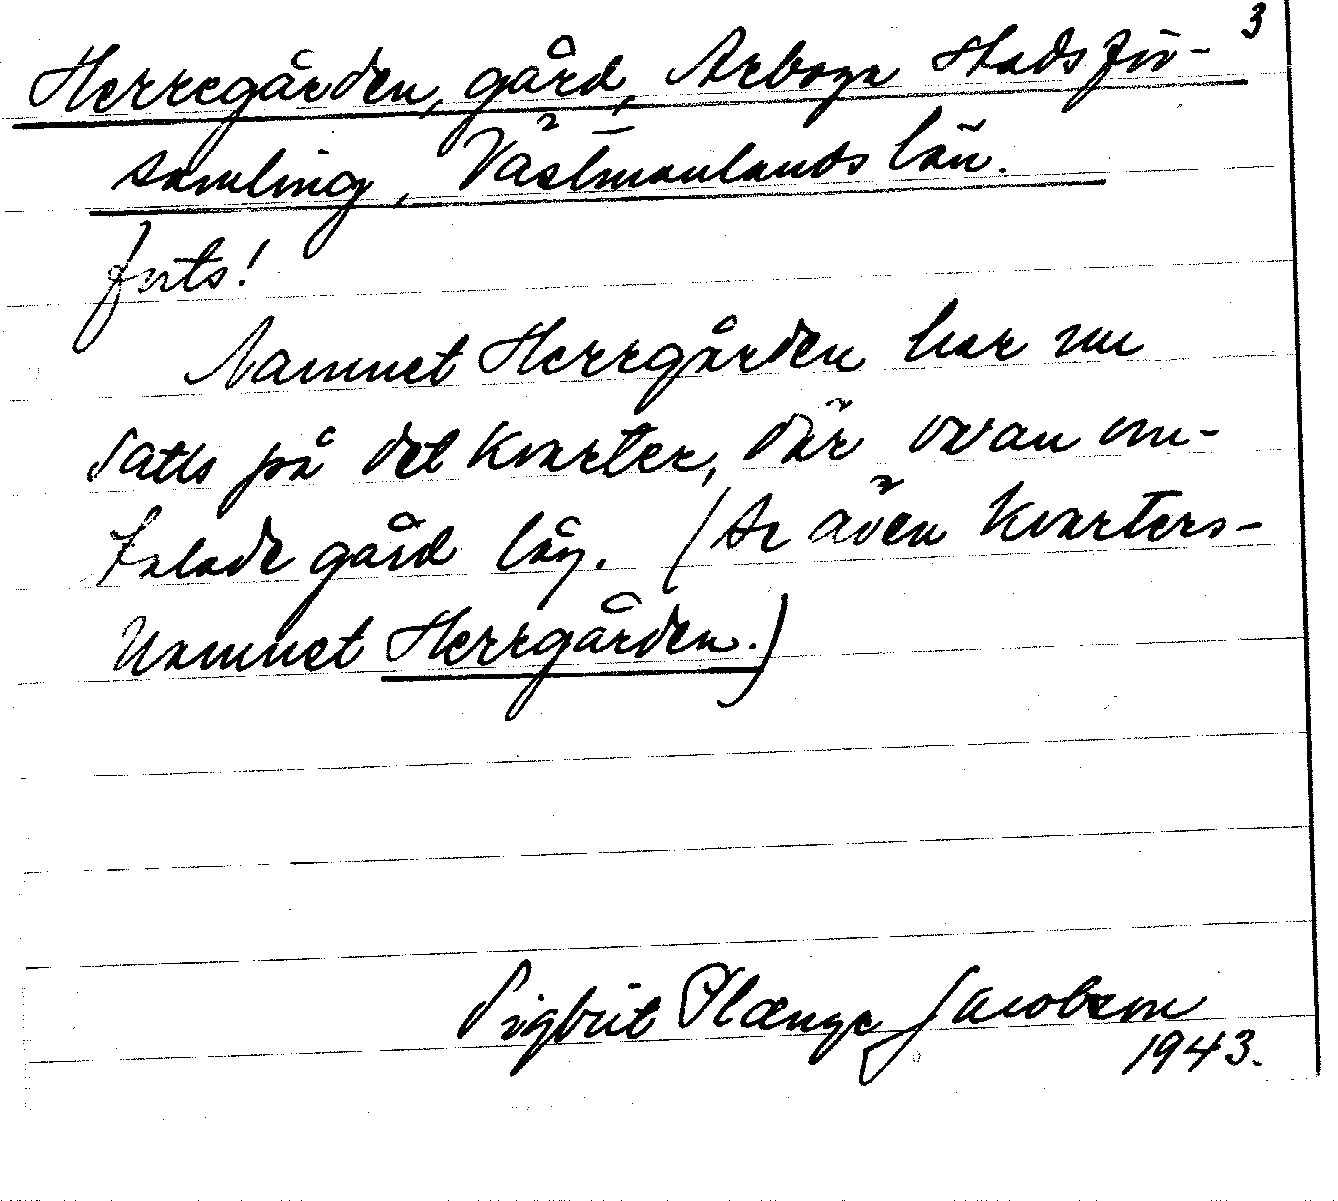 3
Herregården, gård, Arboga stadsför-
samling, Västmanlands län.
forts!
Namnet Herrgården har nu
satts på det kvarter, där ovan om-
talade gård låg. (Se även kvarters-
namnet Herrgården.)
Sigbrit Plænge Jacobson
1943.